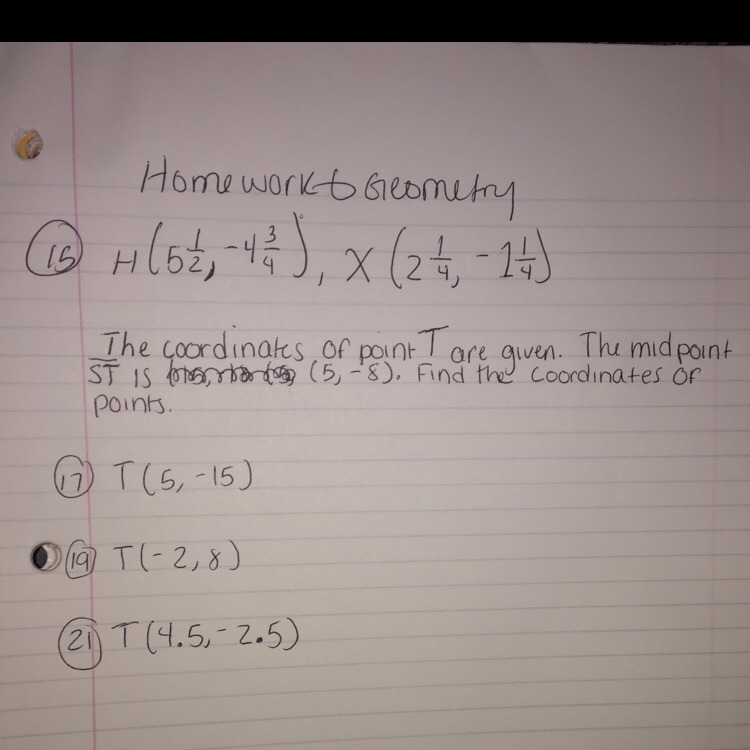 Homework 6 Geometry
15 H(5 1/2, -4 3/4), X(2 1/4, -1 1/4)
The coordinates of point T are given. The midpoint
ST is (5, -8). Find the coordinates of
points.
17 T(5, -15)
19 T(-2, 8)
21 T(4.5, -2.5)